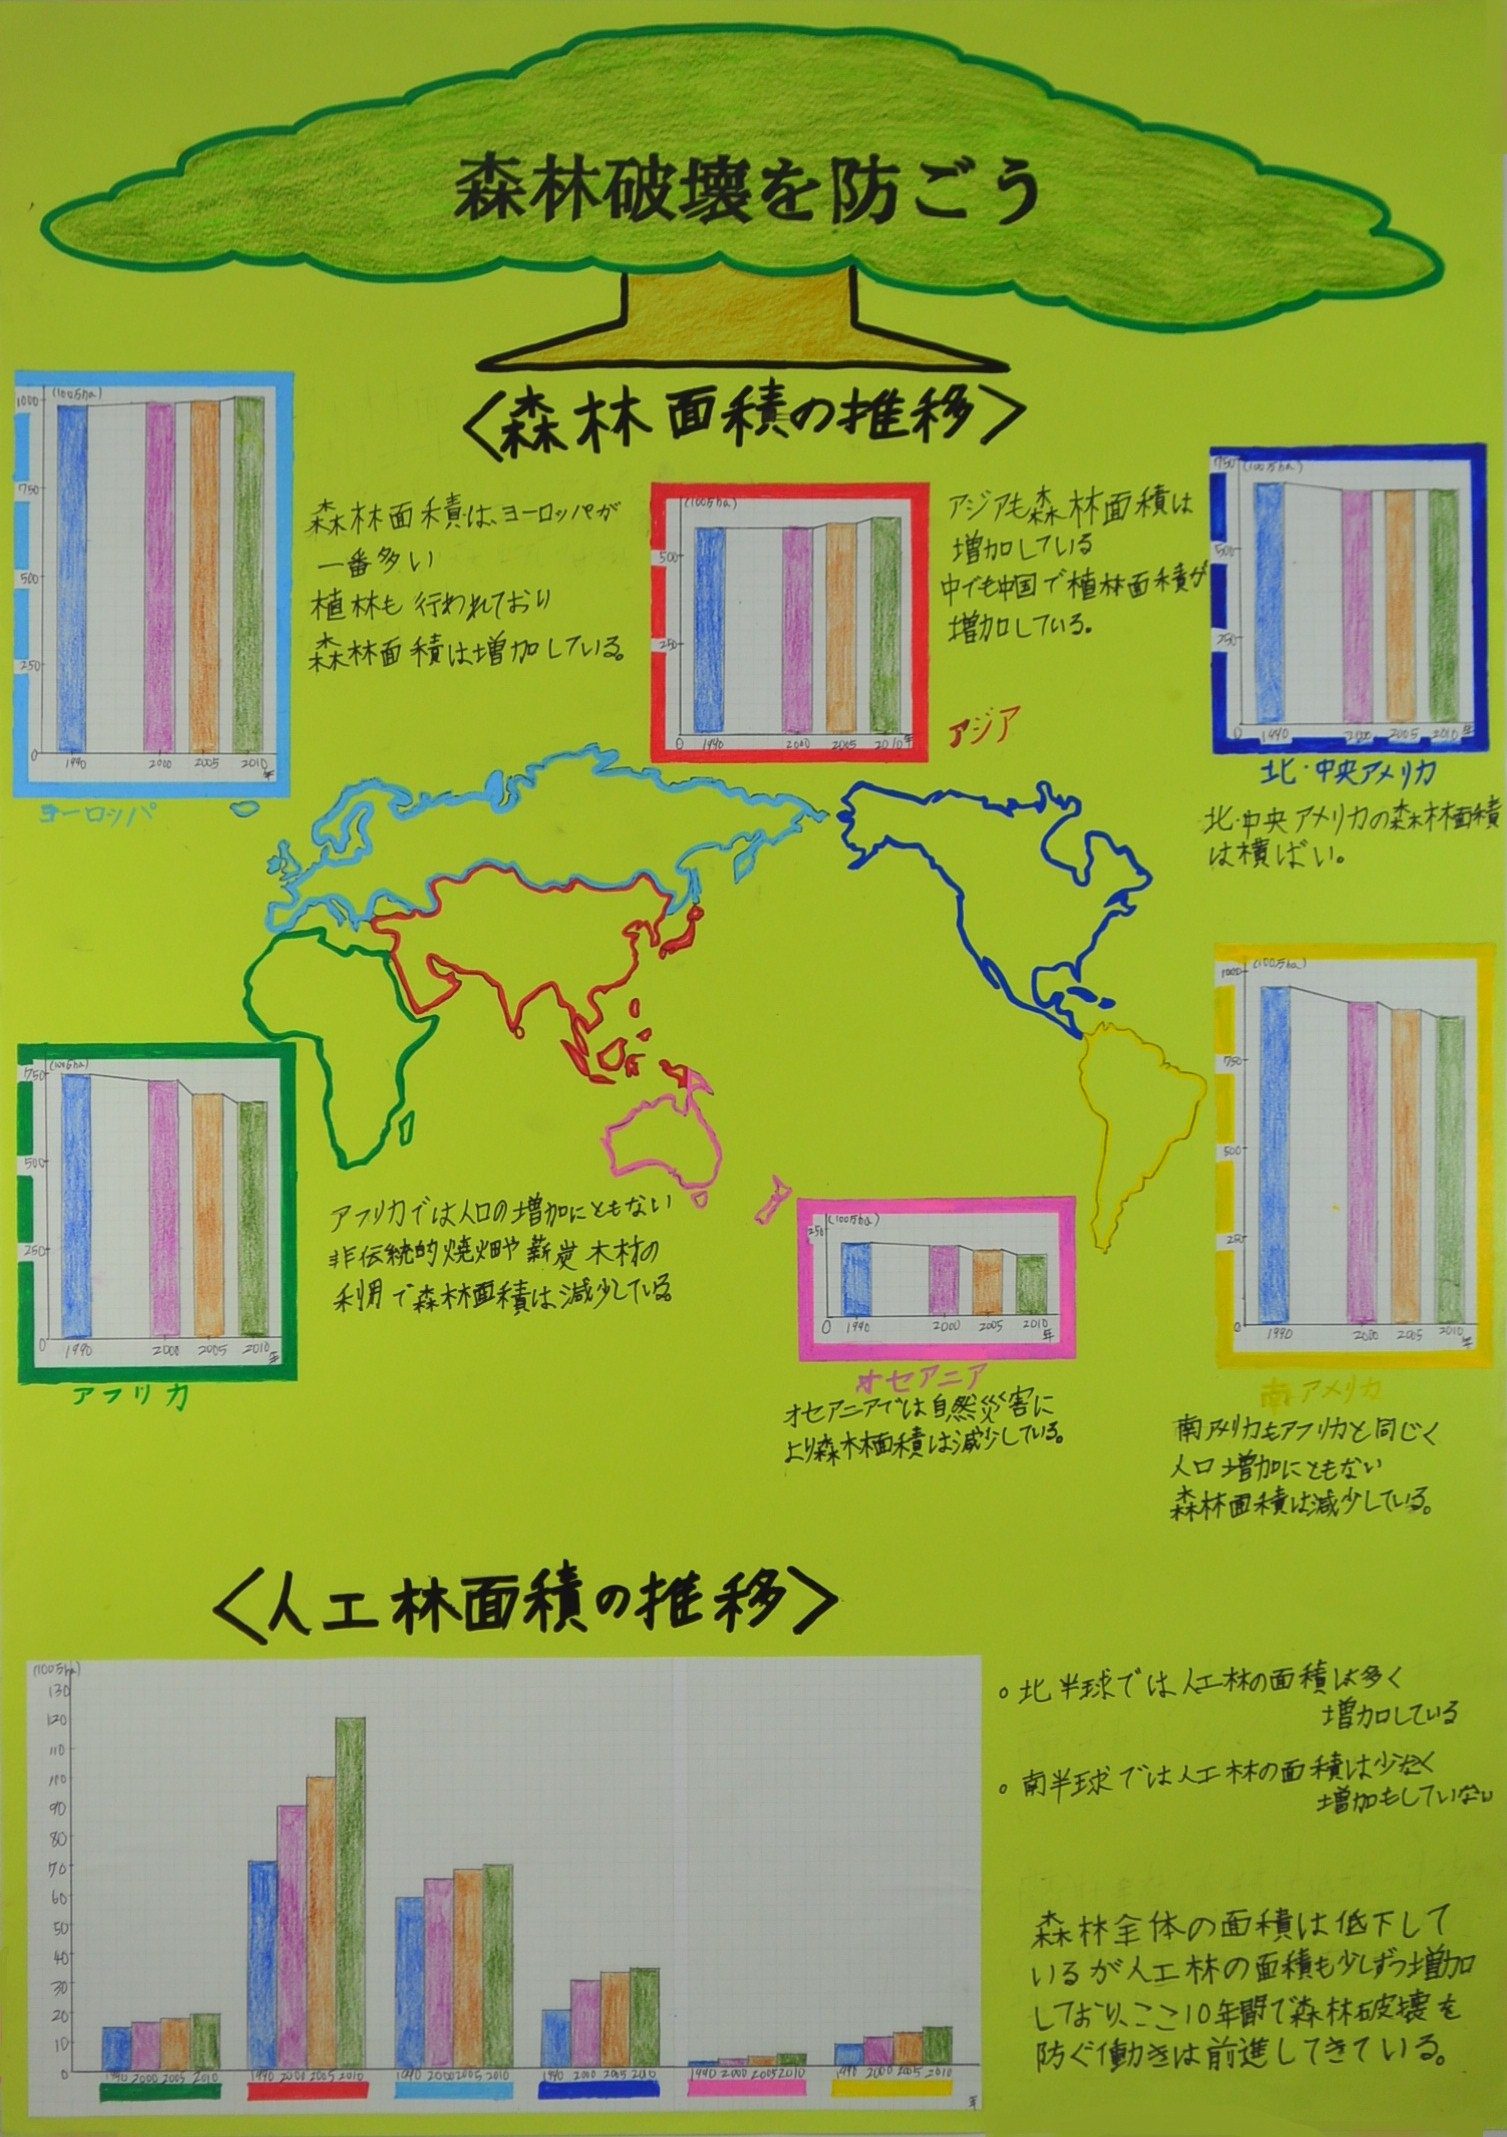 森林破壊を防ごう
<森林面積の推移>
(100万ha)
1000
750
500
250
0
1990
2000
2005
2010
年
ヨーロッパ
森林面積は、ヨーロッパが
一番多い
植林も行われており
森林面積は増加している。
(100万ha)
500
250
0
1990
2000
2005
2010
年
アジア
アジアも森林面積は
増加している
中でも中国で植林面積が
増加している。
750
(100万ha)
500
250
0
1990
2000
2005
2010
年
北・中央アメリカ
北・中央アメリカの森林面積
は横ばい。
750
(100万ha)
500
250
0
1990
2000
2005
2010
年
アフリカ
アフリカでは人口の増加にともない
非伝統的焼畑や薪炭木材の
利用で森林面積は減少している。
250
(100万ha)
0
1990
2000
2005
2010
年
オセアニア
オセアニアでは自然災害に
より森林面積は減少している。
1000
(100万ha)
750
500
250
0
1990
2000
2005
2010
年
南アメリカ
南アメリカもアフリカと同じく
人口増加にともない
森林面積は減少している。
<人工林面積の推移>
(100万ha)
130
120
110
100
90
80
70
60
50
40
30
20
10
0
1990 2000 2005 2010
1990 2000 2005 2010
1990 2000 2005 2010
1990 2000 2005 2010
1990 2000 2005 2010
1990 2000 2005 2010
年
。北半球では人工林の面積は多く
増加している
。南半球では人工林の面積は少なく
増加もしていない
森林全体の面積は低下して
いるが人工林の面積も少しずつ増加
しており、ここ10年間で森林破壊を
防ぐ働きは前進してきている。